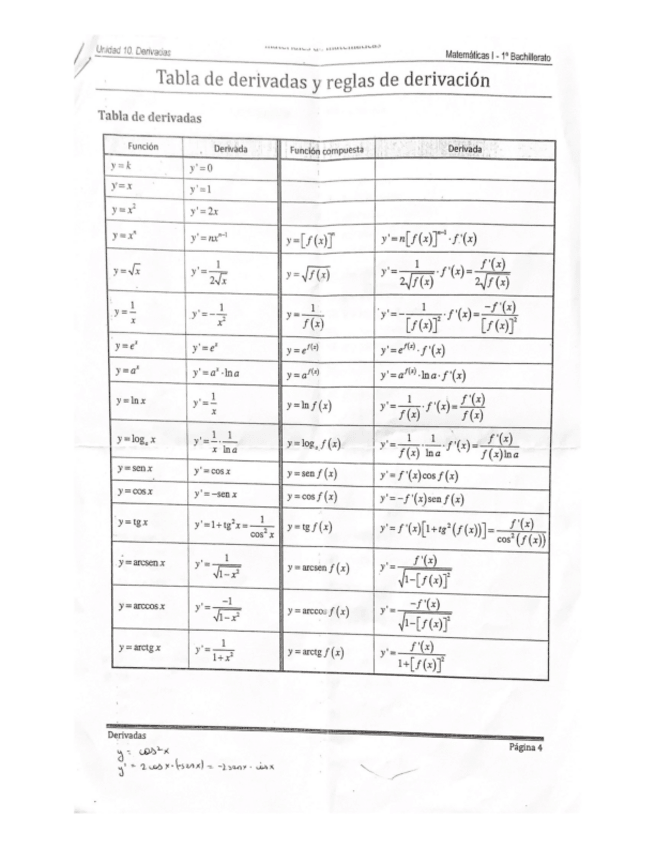 Unidad 10. Derivadas
Matemáticas I - 1º Bachillerato
Tabla de derivadas y reglas de derivación
Tabla de derivadas
Función Derivada Función compuesta Derivada
y = k y' = 0
y = x y' = 1
y = x² y' = 2x
y = xⁿ y' = nxⁿ⁻¹ y = [f(x)]ⁿ y' = n[f(x)]ⁿ⁻¹ · f'(x)
y = √x y' = 1/(2√x) y = √f(x) y' = 1/(2√f(x)) · f'(x) = f'(x)/(2√f(x))
y = 1/x y' = -1/x² y = 1/f(x) y' = -1/[f(x)]² · f'(x) = -f'(x)/[f(x)]²
y = eˣ y' = eˣ y = e^f(x) y' = e^f(x) · f'(x)
y = aˣ y' = aˣ · ln a y = a^f(x) y' = a^f(x) · ln a · f'(x)
y = ln x y' = 1/x y = ln f(x) y' = 1/f(x) · f'(x) = f'(x)/f(x)
y = logₐ x y' = 1/x · 1/ln a y = logₐ f(x) y' = 1/f(x) · 1/ln a · f'(x) = f'(x)/(f(x) ln a)
y = sen x y' = cos x y = sen f(x) y' = f'(x) cos f(x)
y = cos x y' = -sen x y = cos f(x) y' = -f'(x) sen f(x)
y = tg x y' = 1 + tg² x = 1/cos² x y = tg f(x) y' = f'(x)[1 + tg²(f(x))] = f'(x)/cos²(f(x))
y = arcsen x y' = 1/√(1-x²) y = arcsen f(x) y' = f'(x)/√(1-[f(x)]²)
y = arccos x y' = -1/√(1-x²) y = arccos f(x) y' = -f'(x)/√(1-[f(x)]²)
y = arctg x y' = 1/(1+x²) y = arctg f(x) y' = f'(x)/(1+[f(x)]²)
Derivadas
Página 4
y = cos²x
y' = 2 cos x · (-sen x) = -2 sen x · cos x